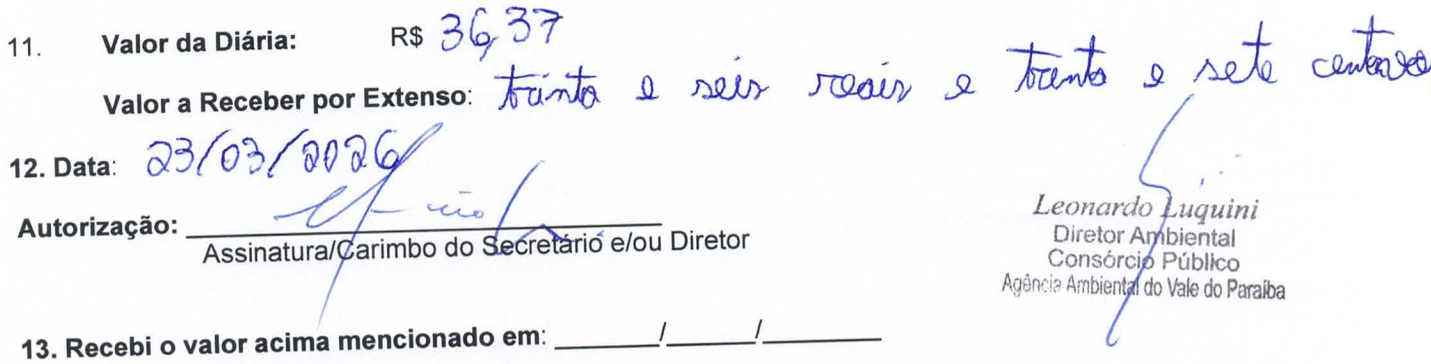 11. Valor da Diária: R$ 36,37
Valor a Receber por Extenso: trinta e seis reais e trinta e sete centavos
12. Data: 23/03/2026
Autorização:
Assinatura/Carimbo do Secretário e/ou Diretor
Leonardo Luquini
Diretor Ambiental
Consórcio Público
Agência Ambiental do Vale do Paraíba
13. Recebi o valor acima mencionado em: ______/______/________